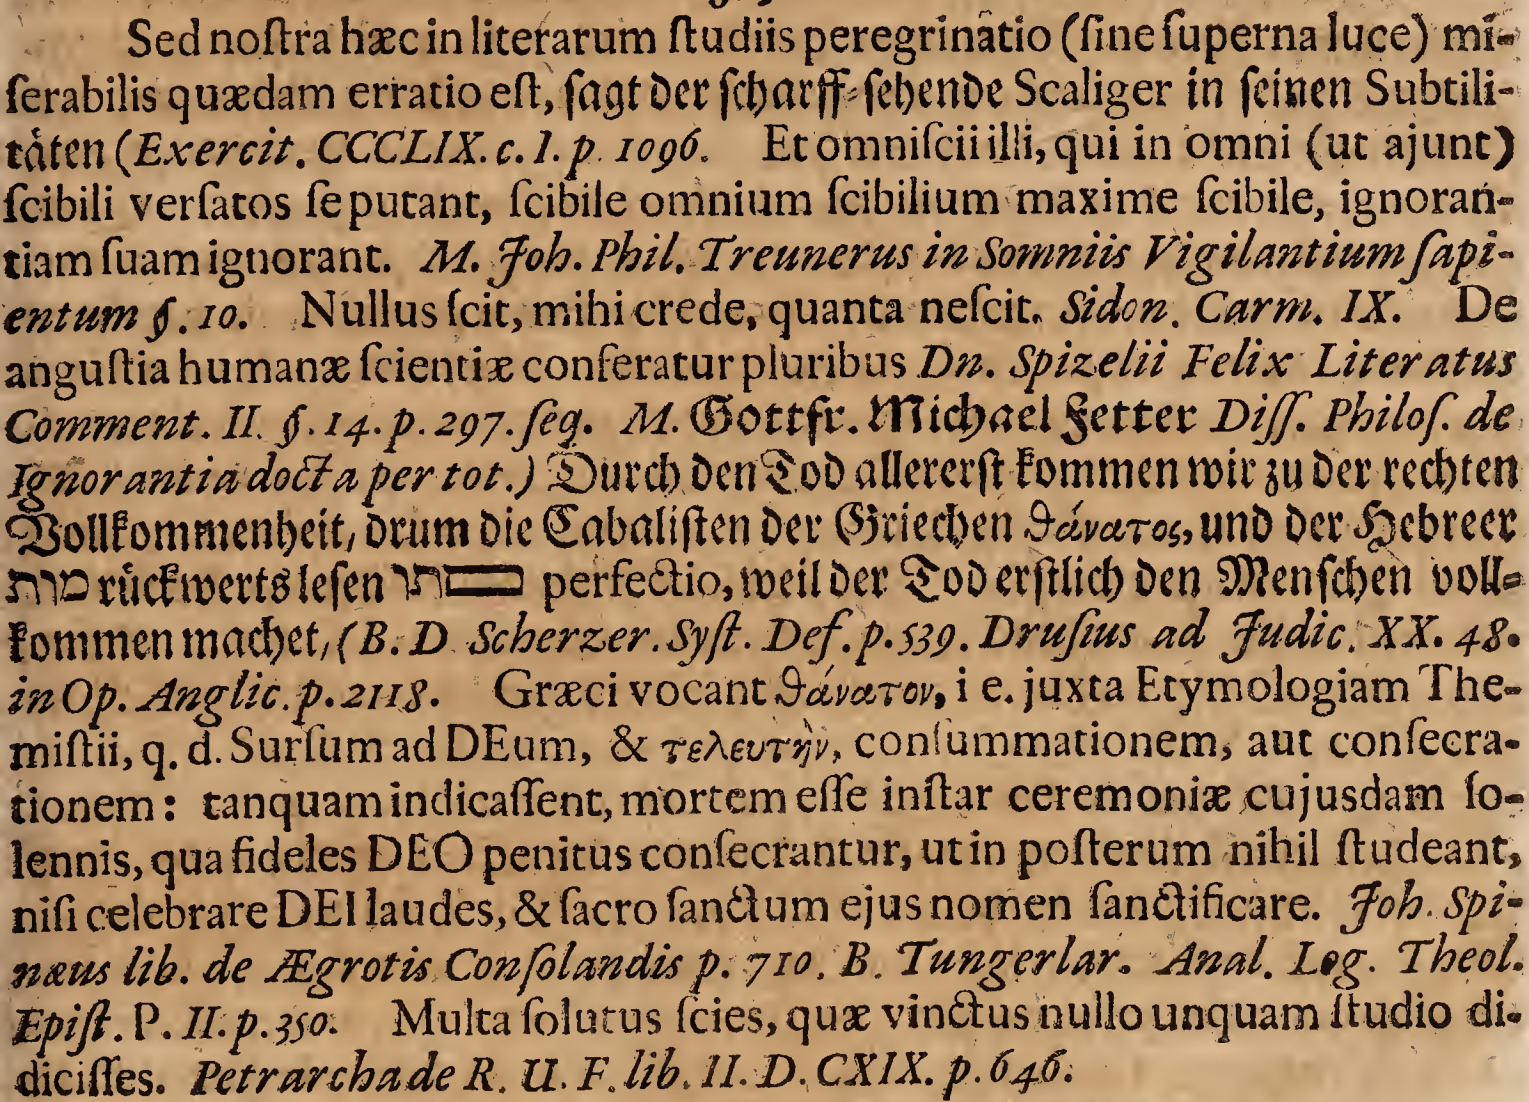 Sed noſtra hæc in literarum ſtudiis peregrinatio (ſine ſuperna luce) mi-
ſerabilis quædam erratio eſt, ſagt der ſcharff-ſehende Scaliger in ſeinen Subtili-
táten (Exercit. CCCLIX. c. 1. p. 1096. Et omniſcii illi, qui in omni (ut ajunt)
ſcibili verſatos ſe putant, ſcibile omnium ſcibilium maxime ſcibile, ignoran-
tiam ſuam ignorant. M. Joh. Phil. Treunerus in Somniis Vigilantium ſapi-
entum §. 10. Nullus ſcit, mihi crede, quanta neſcit. Sidon. Carm. IX. De
anguſtia humanæ ſcientiæ conferatur pluribus Dn. Spizelii Felix Literatus
Comment. II. §. 14. p. 297. ſeq. M. Gottfr. Michael Fetter Diſſ. Philoſ. de
Ignorantia docta per tot.) Durch den Tod allererſt kommen wir zu der rechten
Vollkommenheit, drum die Cabaliſten der Griechen θάνατος, und der Hebreer
מות rückwerts leſen תום perfectio, weil der Tod erſtlich den Menſchen voll-
kommen machet, (B. D. Scherzer. Syſt. Def. p. 539. Druſius ad Judic. XX. 48.
in Op. Anglic. p. 2118. Græci vocant θάνατον, i e. juxta Etymologiam The-
miſtii, q. d. Surſum ad DEum, & τελευτὴν, conſummationem, aut conſecra-
tionem: tanquam indicaſſent, mortem eſſe inſtar ceremoniæ cujusdam ſo-
lennis, qua fideles DEO penitus conſecrantur, ut in poſterum nihil ſtudeant,
niſi celebrare DEI laudes, & ſacro ſanctum ejus nomen ſanctificare. Joh. Spi-
næus lib. de Ægrotis Conſolandis p. 710. B. Tungerlar. Anal. Log. Theol.
Epiſt. P. II. p. 350. Multa ſolutus ſcies, quæ vinctus nullo unquam ſtudio di-
diciſſes. Petrarcha de R. U. F. lib. II. D. CXIX. p. 646.